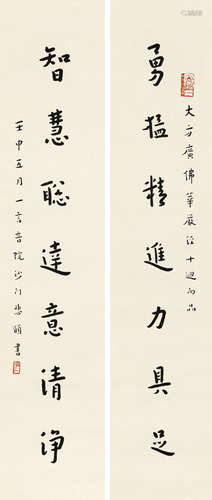 大方廣佛華嚴經十迴向品
勇猛精進力具足
智慧聡達意清淨
壬申五月一言音院沙门悲書